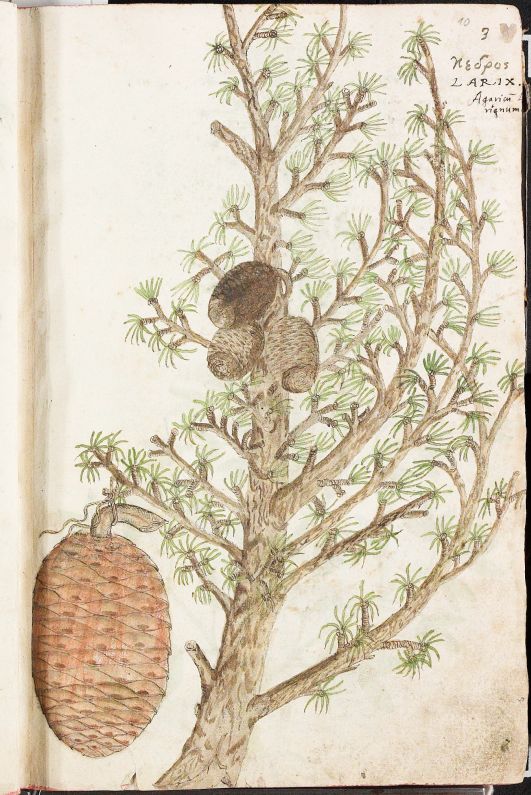 10
3
κεδρος
LARIX.
Agaricū
nignum